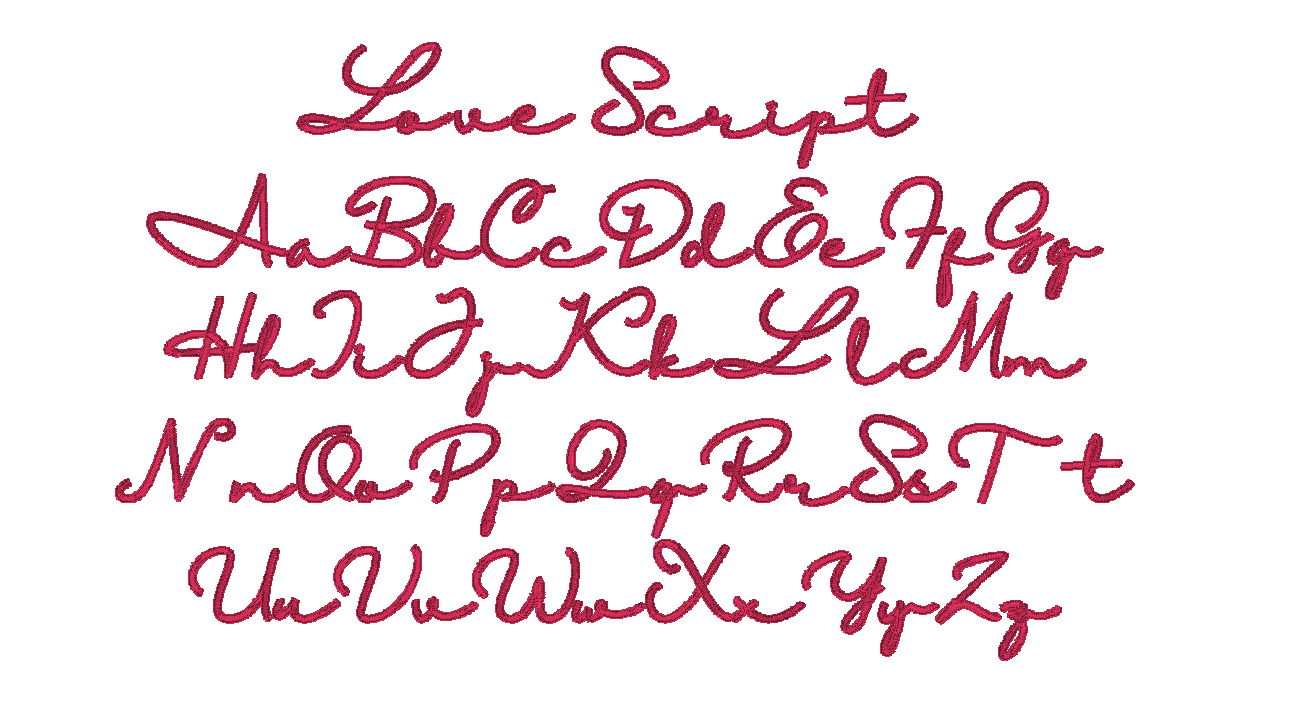 Love Script
AaBbCcDdEeFfGg
HhIiJjKkLlMm
NnOoPpQqRrSsTt
UuVvWwXxYyZz